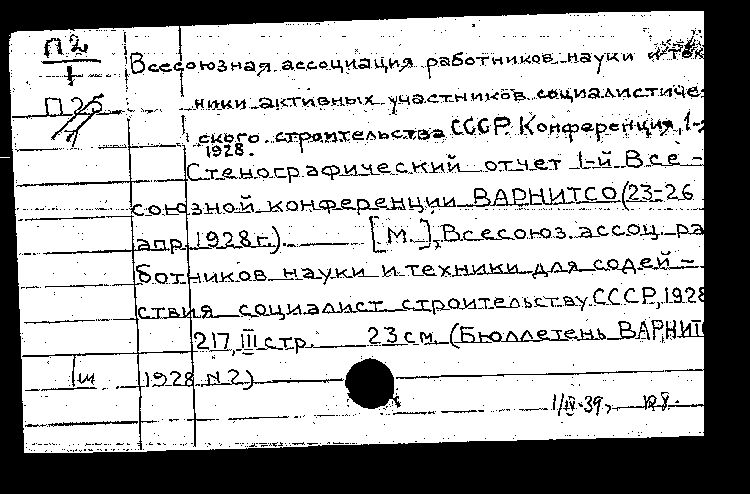 П2
1
П25
Всесоюзная ассоциация работников науки и тех
ники активных участников социалистиче-
ского строительства СССР. Конференция, 1-я
1928.
Стенографический отчет 1-й Все-
союзной конференции ВАРНИТСО (23-26
апр. 1928 г.). [М.], Всесоюз. ассоц. ра
ботников науки и техники для содей-
ствия социалист. строительству СССР, 1928
217, III стр. 23 см. (Бюллетень ВАРНИТ
1928 N2)
1/IV-39,